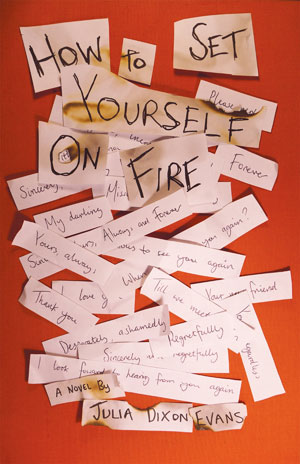 HOW TO SET
YOURSELF
ON FIRE
Please
Forever
Sincerely
My darling
Always, and forever
Yours, always,
to see you again
you again?
I love
Till we meet
Your friend
Thank you
Desperately, ashamedly
Regretfully
Sincerely
regretfully
regardless
I look forward to hearing from you again
A NOVEL BY
JULIA DIXON EVANS